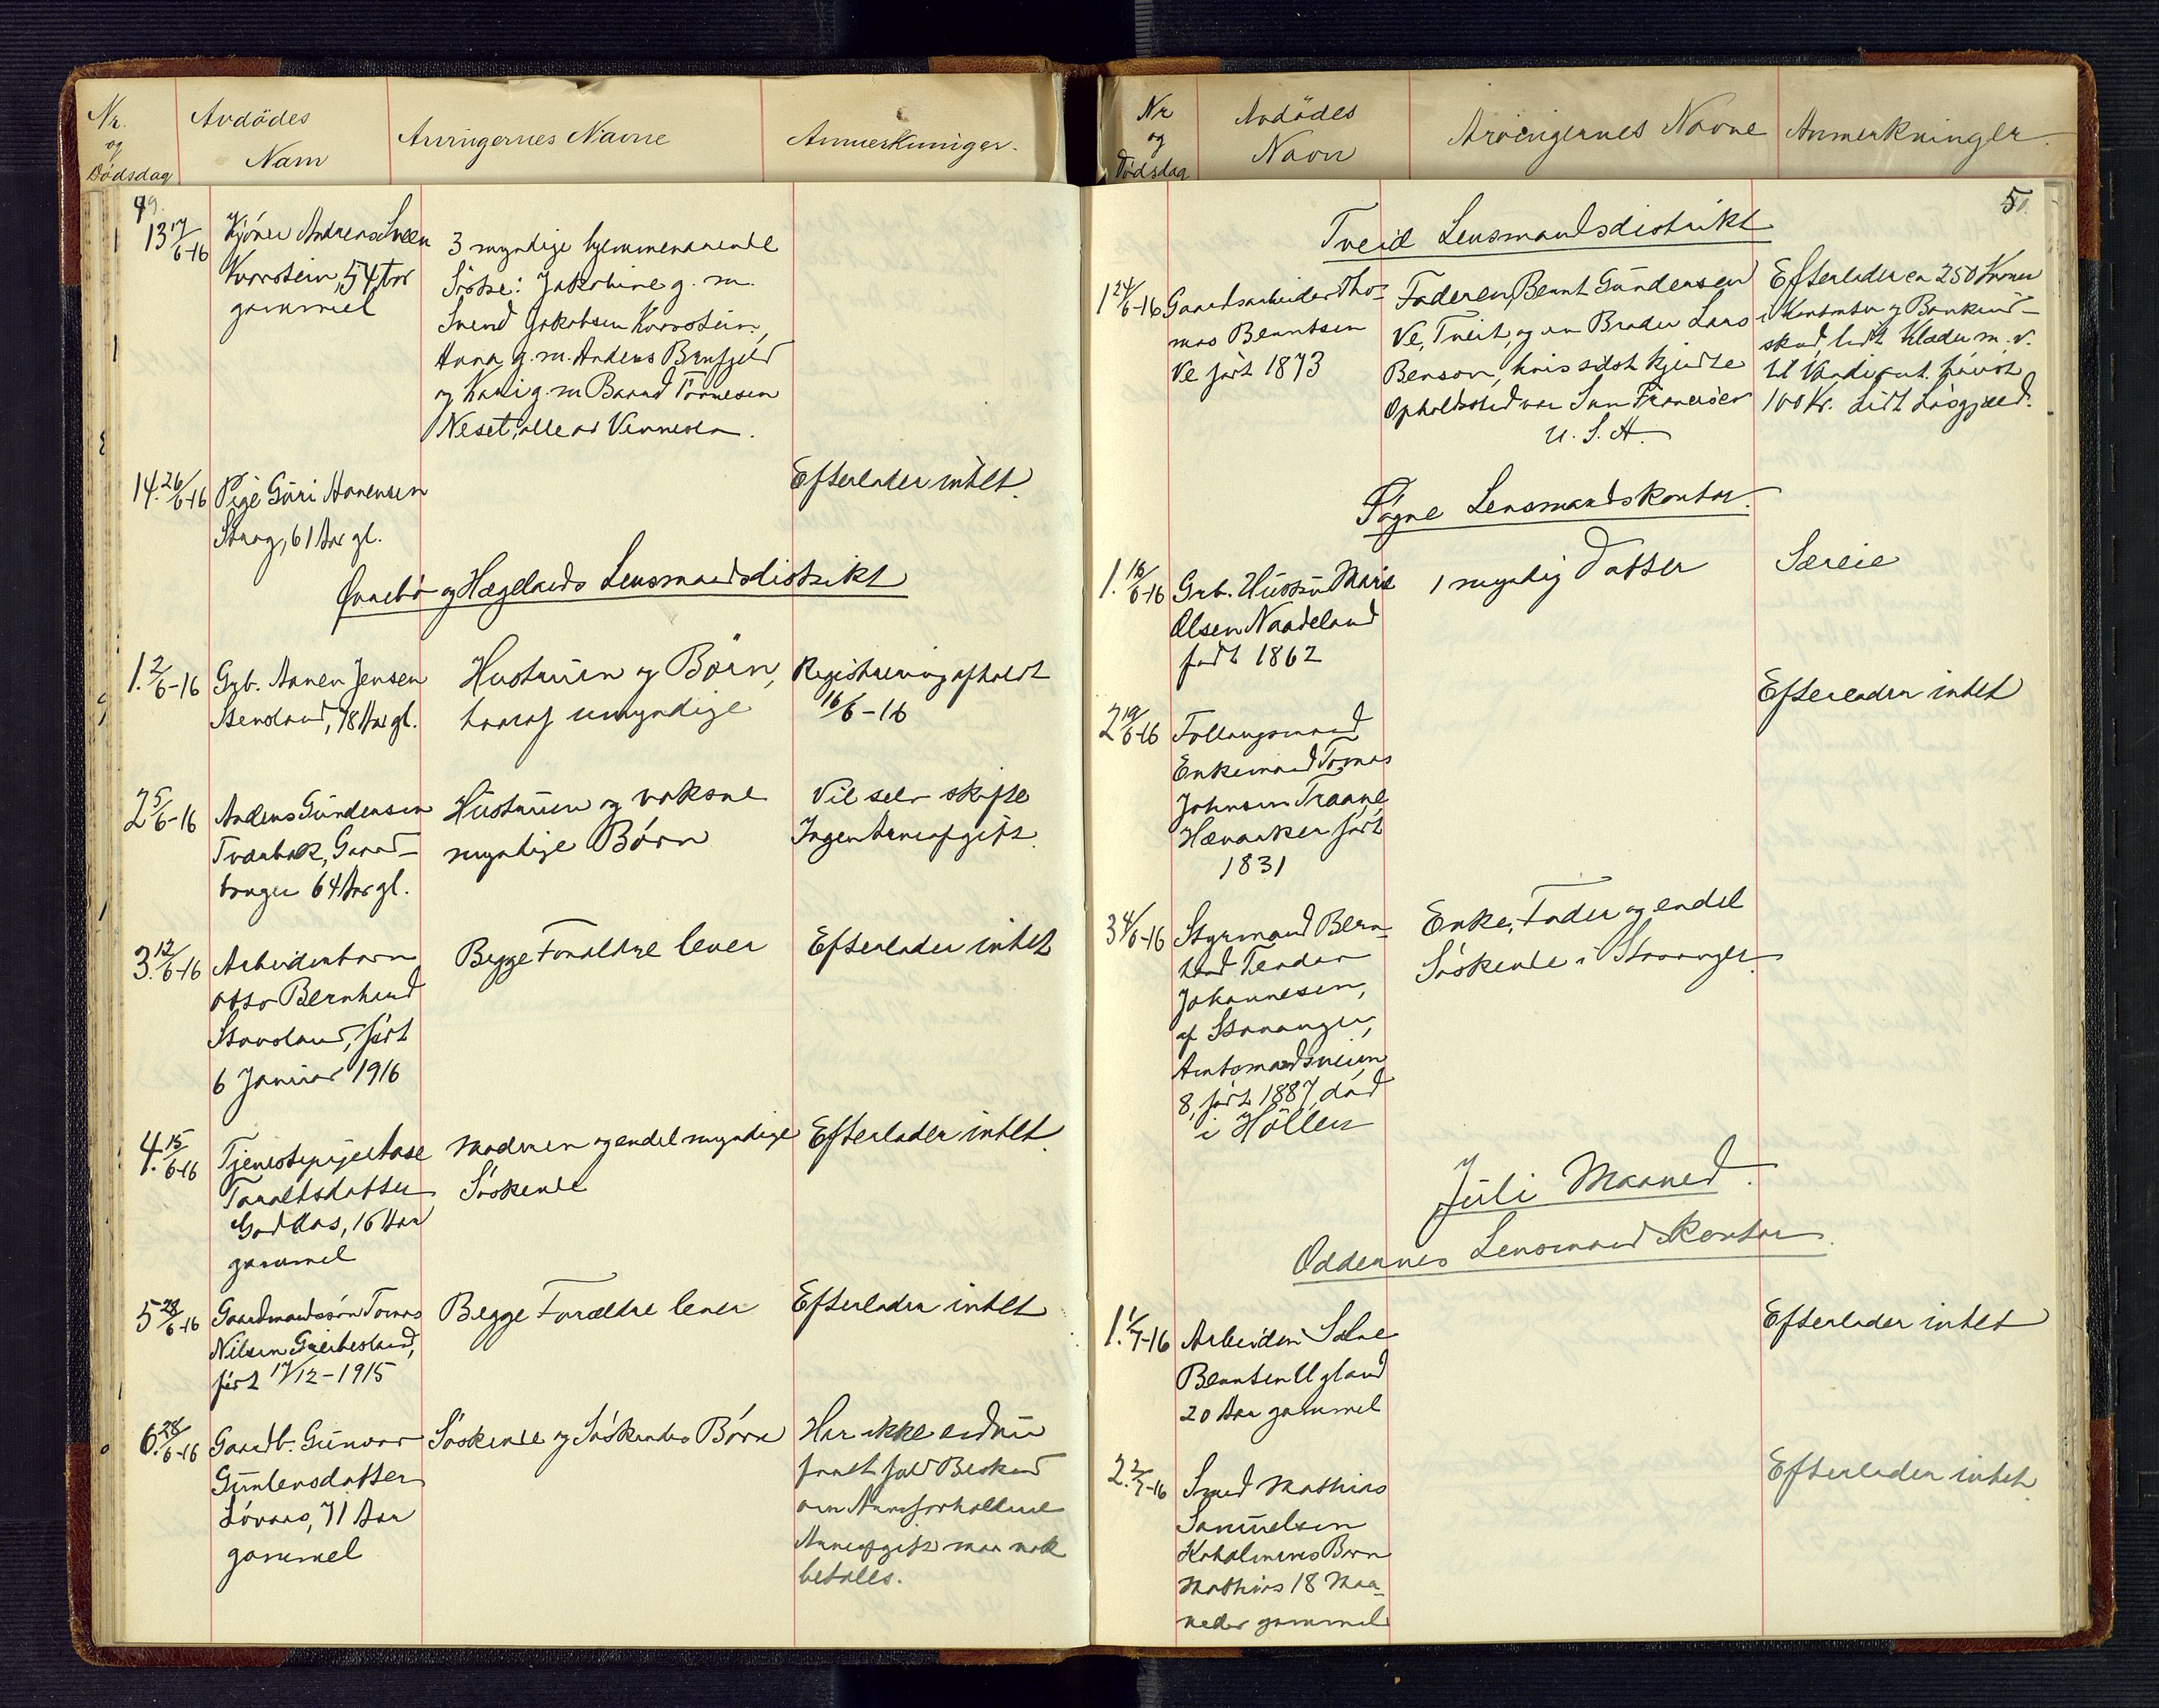 Nr.
og
Dödsdag
Avdödes
Navn
Arvingernes Navne
Anmerkninger.
49.
13 17/6-16
Andreas Sveen
Kvarstein, 54 Aar
gammel
3 myndige hjemmeværende
Söstre: Jakobine g. m.
Svend Jakobsen Kvarstein,
Anna g. m. Anders
og Kari g. m.
Neset, alle av Vennesla.
14. 26/6-16
Pige Guri Aanensen
Strag, 61 Aar gl.
Efterlader intet.
Øvrebö og Hægelands Lensmandsdistrikt
1. 2/6-16
Grb. Aanen Jensen
Stensland, 78 Aar gl.
Hustruen og Børn,
hvoraf umyndige
Registrering afholdt
16/6-16
2 5/6-16
Anders Gundersen
Tværbak, Gaard-
bruger 64 Aar gl.
Hustruen og voksne
myndige Børn
Vil selv skifte
Ingen Arveafgift.
3. 12/6-16
Arbeiderbarn
Otto Bernhard
Stavland, født
6 Januar 1916
Begge Forældre lever
Efterlader intet
4. 15/6-16
Tjenestepige Aase
Taraldsdatter
16 Aar
gammel
Moderen og endel myndige
Söskende
Efterlader intet.
5 28/6-16
Gaardmandssøn Tomas
Nilsen Greibesland,
født 17/12-1915
Begge Forældre lever
Efterlader intet
6. 28/6-16
Gaardb. Gunvor
Gunleusdatter
Løvaas, 71 Aar
gammel
Söskende og Söskendes Børn
Har ikke endnu
faaet fuld Besked
om Arveforholdene
Arveafgift maa nok
betales.
Nr
og
Dödsdag
Avdödes
Navn
Arvingernes Navne
Anmerkninger.
50.
Tveid Lensmandsdistrikt
1 24/6-16
Gaardsarbeider Tho-
mas Berntsen
Ve født 1873
Faderen, Bernt Gundersen
Ve, Tveit, og en Broder Lars
Benson, hvis sidst kjendte
Opholdssted var San Francisco
U. S. A.
Efterlader ca 250 Kroner
i Kontanter og Bankind-
skud, lidt Klæder m. v.
til Værdi ant. høist
100 Kr. Lidt Løsgjæld.
Søgne Lensmandskontor.
1. 16/6-16
Grb. Hustru Marie
Olsen Naadeland
født 1862
1 myndig Datter
Særeie
2 19/6-16
Enkemand Tomas
Johnsen Traane,
født
1831
Efterlader intet
3 4/6-16
Styrmand Bern-
hard Teodor
Johannesen,
af Stavanger,
Amtsmandsveien
8, født 1887, død
i Höllen
Enke, Fader og endel
Söskende i Stavanger.
Juli Maaned.
Oddernes Lensmandskontor.
1. 1/7-16
Arbeider Salve
Berntsen Ugland
20 Aar gammel
Efterlader intet
2. 2/7-16
Smed Mathias
Samuelsen
Kobolmens Barn
Mathias 18 Maa-
neder gammel
Efterlader intet.